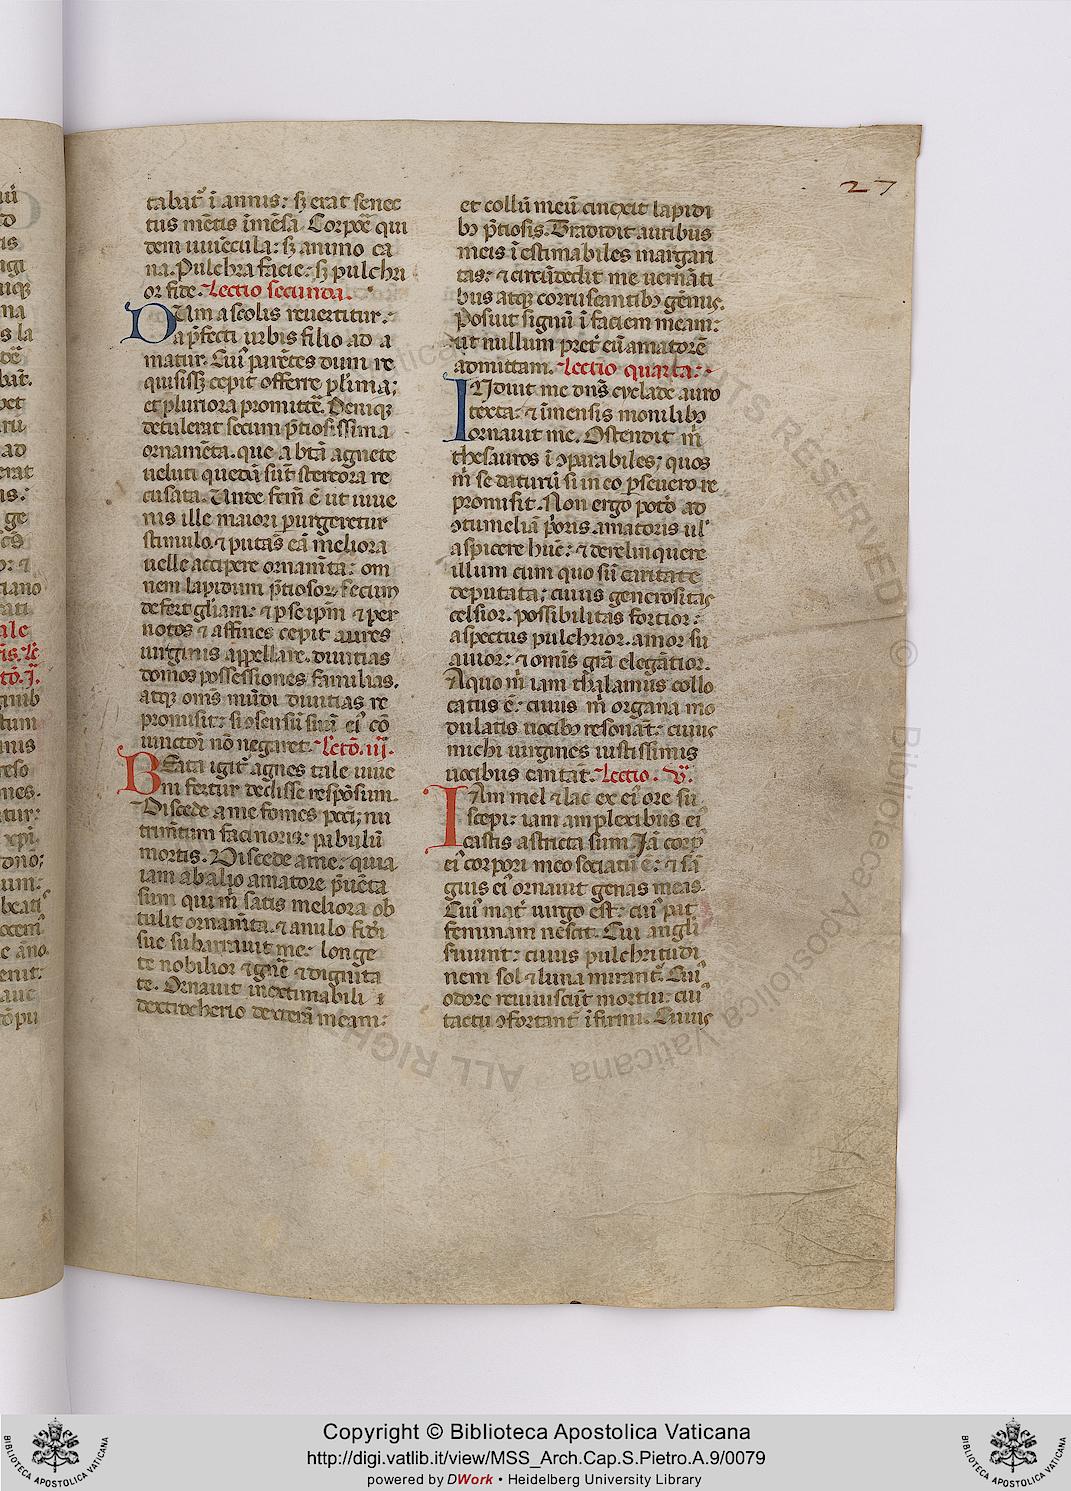 27
tabat᷑ ī annis: sꝫ erat senec
tus mētis īmēsa. Corpoꝛe qui
dem iuuēcula: sꝫ animo ca
na. Pulchra facie: sꝫ pulchri
or fide. Lectio secunda.
DUm a scolis reuertitur:
a p̄fecti urbis filio ad a
matur. Cui᷒ parētes dum re
quisissꝫ cepit offerre pl᷑ima;
et pluriora promittē. Deniqꝫ
detulerat secum p̄tiosissima
ornamēta. que a btā agnete
ueluti quedā sūt stercora re
cusata. Unde fcm̄ ē ut iuue
nis ille maiori purgeretur
stimulo. ⁊ putās eā meliora
uelle accipere ornamīta: om
nem lapidum p̄tiosoꝝ. secum
defert gliam: ⁊ p se ip̄m ⁊ per
notos ⁊ affines cepit aures
uirginis appellare. diuitias
domos possessiones familias.
atqꝫ om̄s mūdi diuitias re
promisit: si ↄsensū suū ei᷒ cō
iunctoī nō negaret. Letō. iij.
BEata igit᷑ agnes tale iuue
ni fertur dedisse respōsum.
Discede a me fomes pcc̄i; nu
trimītum facinoris: pabulū
mortis. Discede a me: quia
iam ab alio amatore p̄uēta
sum qui m̄ satis meliora ob
tulit ornamīta. ⁊ anulo fidei
sue subarrauit me: longe
te nobilior ⁊ gn̄e ⁊ dignita
te. Ornauit inextimabili
dextrocherio dexterā meam:
et collū meū cinexit lapidi
bꝫ p̄tiosis. Tradidit auribus
meis ī estimabiles margari
tas: ⁊ circūdedit me uernāti
bus atqꝫ corruscantibꝫ gēmis.
Posuit signū ī faciem meam:
ut nullum pret᷑ eū amatorē
admittam. Lectio quarta:
INduit me dn̄s cyclade auro
texta: ⁊ īmensis monilibꝫ
ornauit me. Ostendit m̄
thesauros ī ↄparabiles; quos
m̄ se daturū si in eo p̱seuero re
promisit. Non ergo potō ad
ↄtumeliā p̄oris amatoris ul᷑
aspicere hūc: ⁊ derelinquere
illum cum quo sū caritate
deputata: cuius generositas
celsior. possibilitas fortior:
aspectus pulchrior. amor su
auior: ⁊ om̄is gr̄a elegātior.
A quo m̄ iam thalamus collo
catus ē: cuius m̄ organa mo
dulatis uocibꝫ resonāt: cuius
michi uirgines iustissimis
uocibus cantāt. Lectio. V.
IAm mel ⁊ lac ex ei᷒ ore su
scepi: iam amplexibus ei᷒
castis astricta sum. Jā corp᷒
ei᷒ corpori meo sociatū ē: ⁊ sā
guis ei᷒ ornauit genas meas.
Cui᷒ mat᷑ uirgo est: cui᷒ pat᷑
feminam nescit. Cui angli
siuunt: cuius pulchritudi
nem sol ⁊ luna mirant᷑. Cui᷒
odore reuiuiscūt mortui: cui᷒
tactu ↄfortant᷑ īfirmi. Cuius
Copyright © Biblioteca Apostolica Vaticana
http://digi.vatlib.it/view/MSS_Arch.Cap.S.Pietro.A.9/0079
powered by DWork • Heidelberg University Library